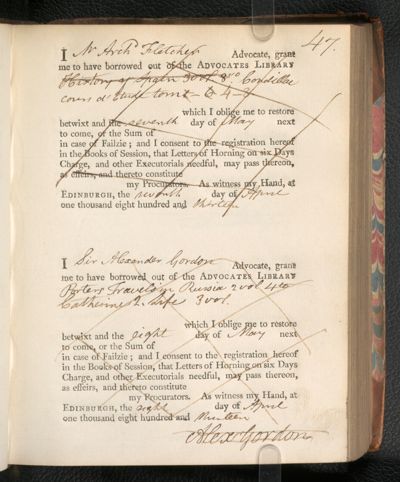 47.
I Mr Archd Fletcher Advocate, grant
me to have borrowed out of the ADVOCATES LIBRARY
History of Spain 3 vol 8vo Condillac
cours d'Etude tom 1 to 4
which I oblige me to restore
betwixt and the seventh day of May next
to come, or the Sum of
in case of Failzie; and I consent to the registration hereof
in the Books of Session, that Letters of Horning on six Days
Charge, and other Executorials needful, may pass thereon,
as effeirs, and thereto constitute
my Procurators. As witness my Hand, at
EDINBURGH, the seventh day of April
one thousand eight hundred and thirteen
I Sir Alexander Gordon Advocate, grant
me to have borrowed out of the ADVOCATES LIBRARY
Porters Travels in Russia 2 vol 4to
Catherine 2. Life 3 vol.
which I oblige me to restore
betwixt and the eight day of May next
to come, or the Sum of
in case of Failzie; and I consent to the registration hereof
in the Books of Session, that Letters of Horning on six Days
Charge, and other Executorials needful, may pass thereon,
as effeirs, and thereto constitute
my Procurators. As witness my Hand, at
EDINBURGH, the eight day of April
one thousand eight hundred and thirteen
Alex Gordon